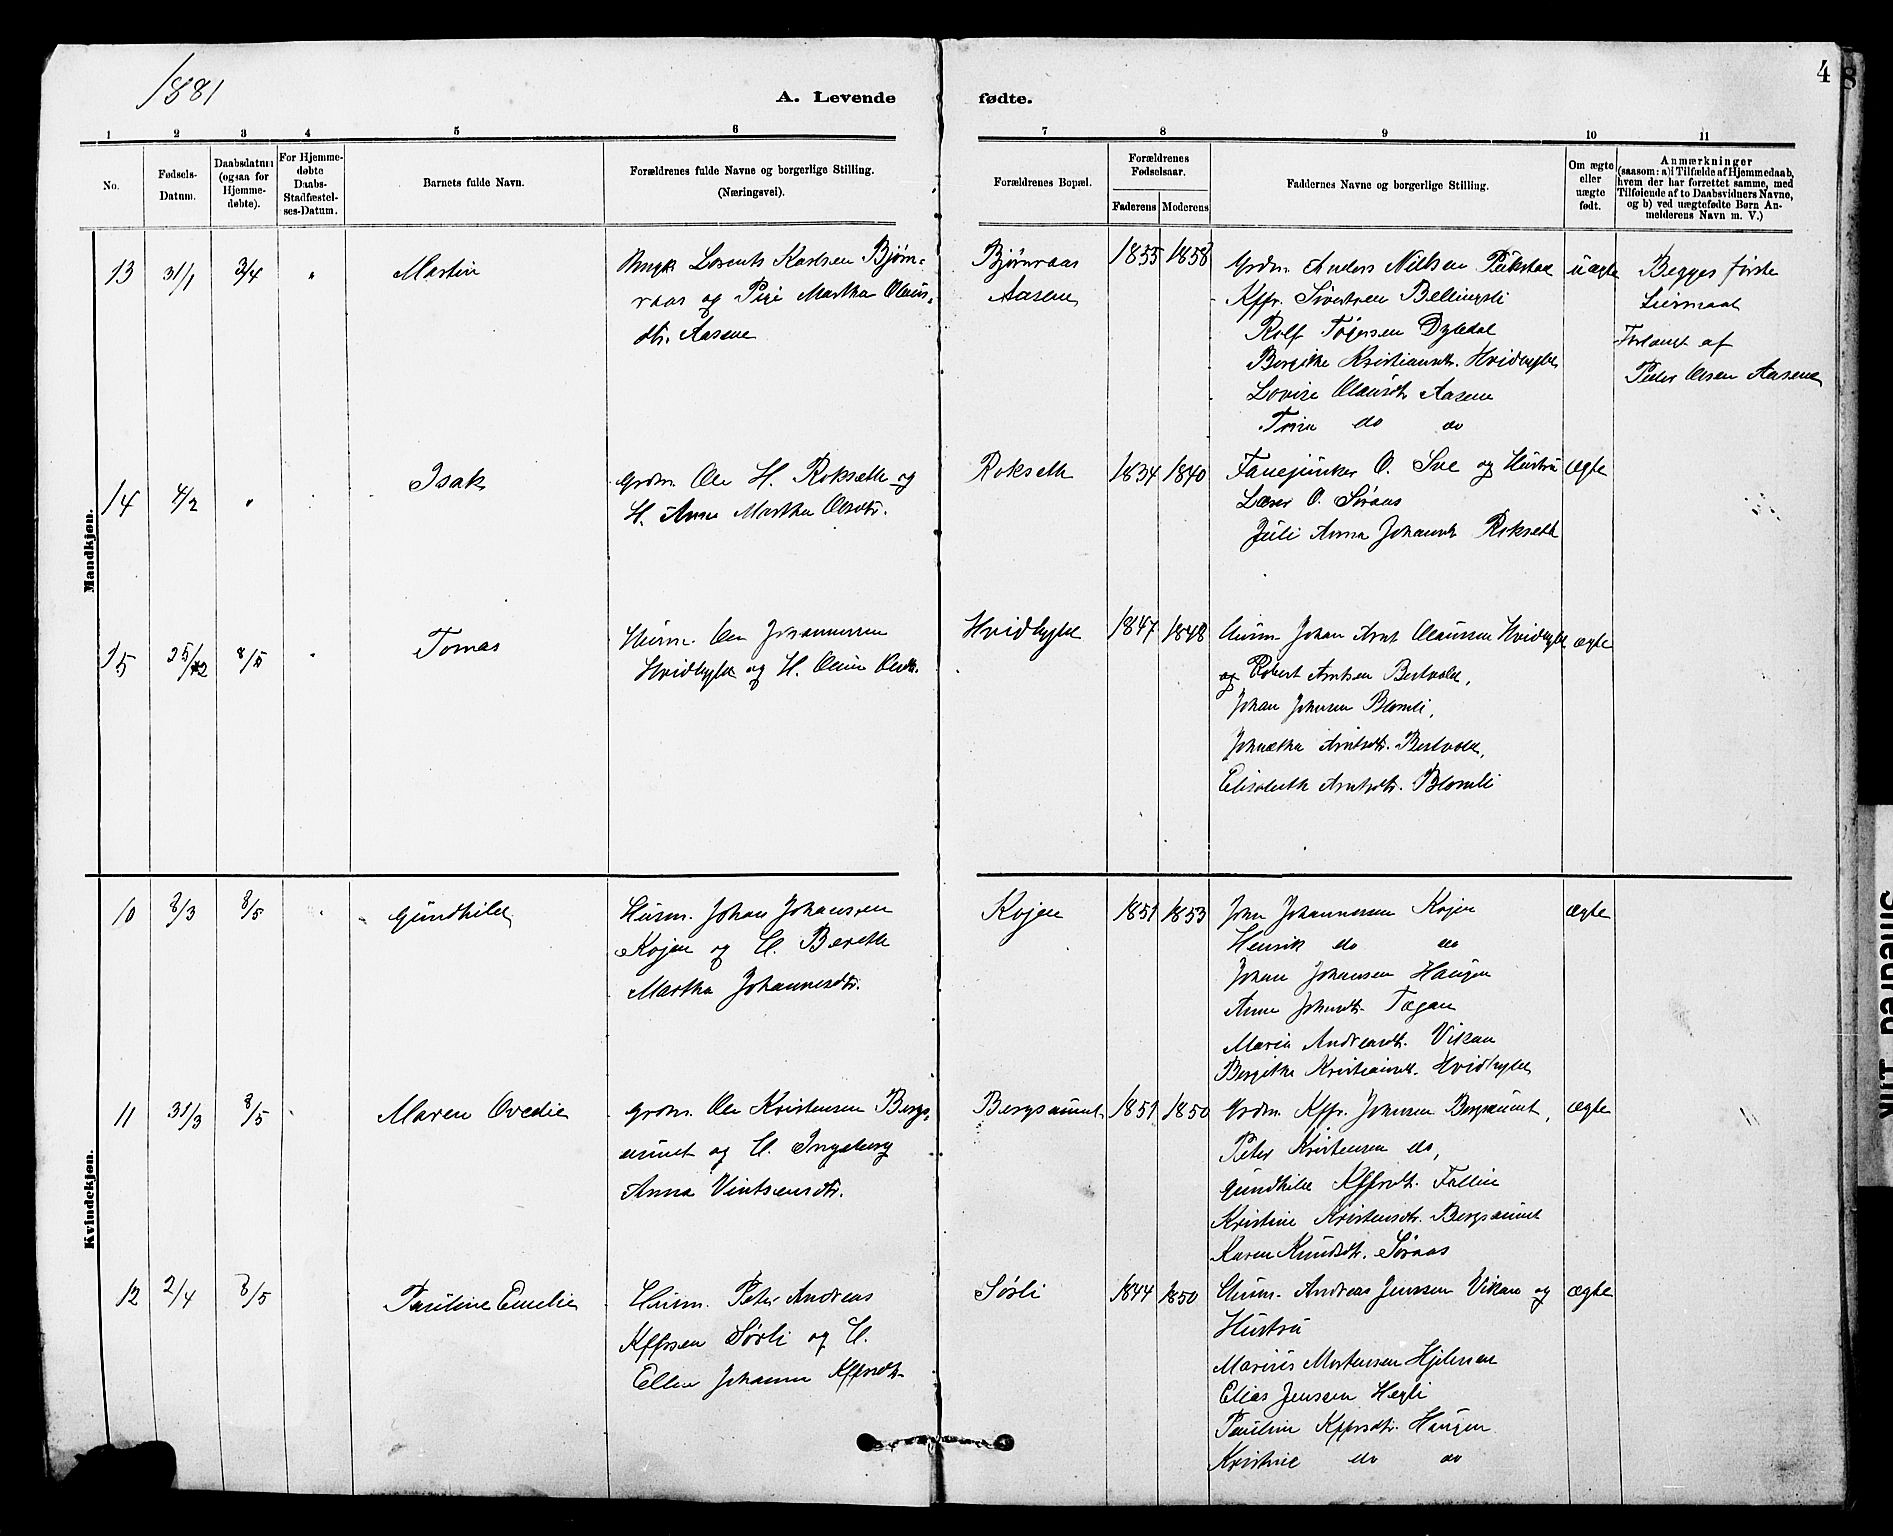 1881
A. Levende fødte.
4
1 2 3 4 5 6 7 8 9 10 11
No.
Fødsels-Datum.
Daabsdatum (ogsaa for Hjemme-døbte).
For Hjemme-døbte Daabs-Stadfæstel-ses-Datum.
Barnets fulde Navn.
Forældrenes fulde Navne og borgerlige Stilling.
(Næringsvei).
Forældrenes Bopæl.
Forældrenes Fødselsaar.
Faderens Moderens
Faddernes Navne og borgerlige Stilling.
Om ægte eller uægte født.
Anmærkninger
(saasom: a) i Tilfælde af Hjemmedaab,
hvem der har forrettet samme, med
Tilføiende af to Daabsvidners Navne,
og b) ved uægtefødte Børn An-
melderens Navn m. V.)
Mandkjøn.
13 31/1 3/4 " Martin
Ungk. Lorents Karlsen Bjørn-
raas og Pige Martha Olaus-
dtr. Aasene
Bjørnraas
Aasene
1855 1858
Grdm. Anders Nilsen
Kffr. Sivertsen Bellingsli
Rolf Tørersen Dyledal
Bergithe Kristiansdtr. Hvidbygld
Lovise Olausdtr. Aasene
Trine do do
uægte
Begges første
Leiermaal
Forlangt af
Peter Olsen Aasene
14 4/2 " Isak
Grdm. Ole H. Rokseth og
H. Anne Martha Olsdtr.
Rokseth
1834 1840
Fanejunker O. Sve og Hustru
Læser O. Søraas
Juli Anna Johansdtr. Rokseth
ægte
15 25/12 8/5 " Tomas
Husm. Ole Johannessen
Hvidbygld og H. Oline Olsdtr.
Hvidbygld
1847 1848
Husm. Johan Arnt Olaussen Hvidbygld
og Robert Arntsen Bertvold,
Johan Johnsen Blomli,
Arntsdtr. Bertvold,
Elisabeth Arntsdtr. Blomli
ægte
Kvindekjøn.
10 8/3 8/5 Gundhild
Husm. Johan Johansen
Kojen og H. Bereth
Martha Johannesdtr.
Kojen
1851 1853
John Johannessen Kojen
Henrik do do
Johan Johansen Haugen
Anne Johnsdtr. Tægan
Maria Andreasdtr. Vikan
Bergithe Kristiansdtr. Hvidbygld
ægte
11 31/3 8/5 Maren Ovedie
Grdm. Ole Kristensen Bergs-
aunet og H. Ingeborg
Anna Vintsensdtr.
Bergsaunet
1851 1850
Grdm. Kffr. Johnsen Bergsaunet,
Peter Kristensen do,
Gundhild Kffrsdtr. Fallin
Kristine Kristensdtr. Bergsaunet
Karen Knudsdtr. Søraas
ægte
12 2/4 8/5 Pauline Emelie
Husm. Peter Andreas
Kffrsen Sørli og H.
Ellen Johanna Kffrsdtr.
Sørli
1844 1850
Husm. Andreas Jenssen Vikan og
Hustru
Marius Mortensen Hjelman
Elias Jensen Hegli
Pauline Kffrsdtr. Haugen
Kristine do do
ægte